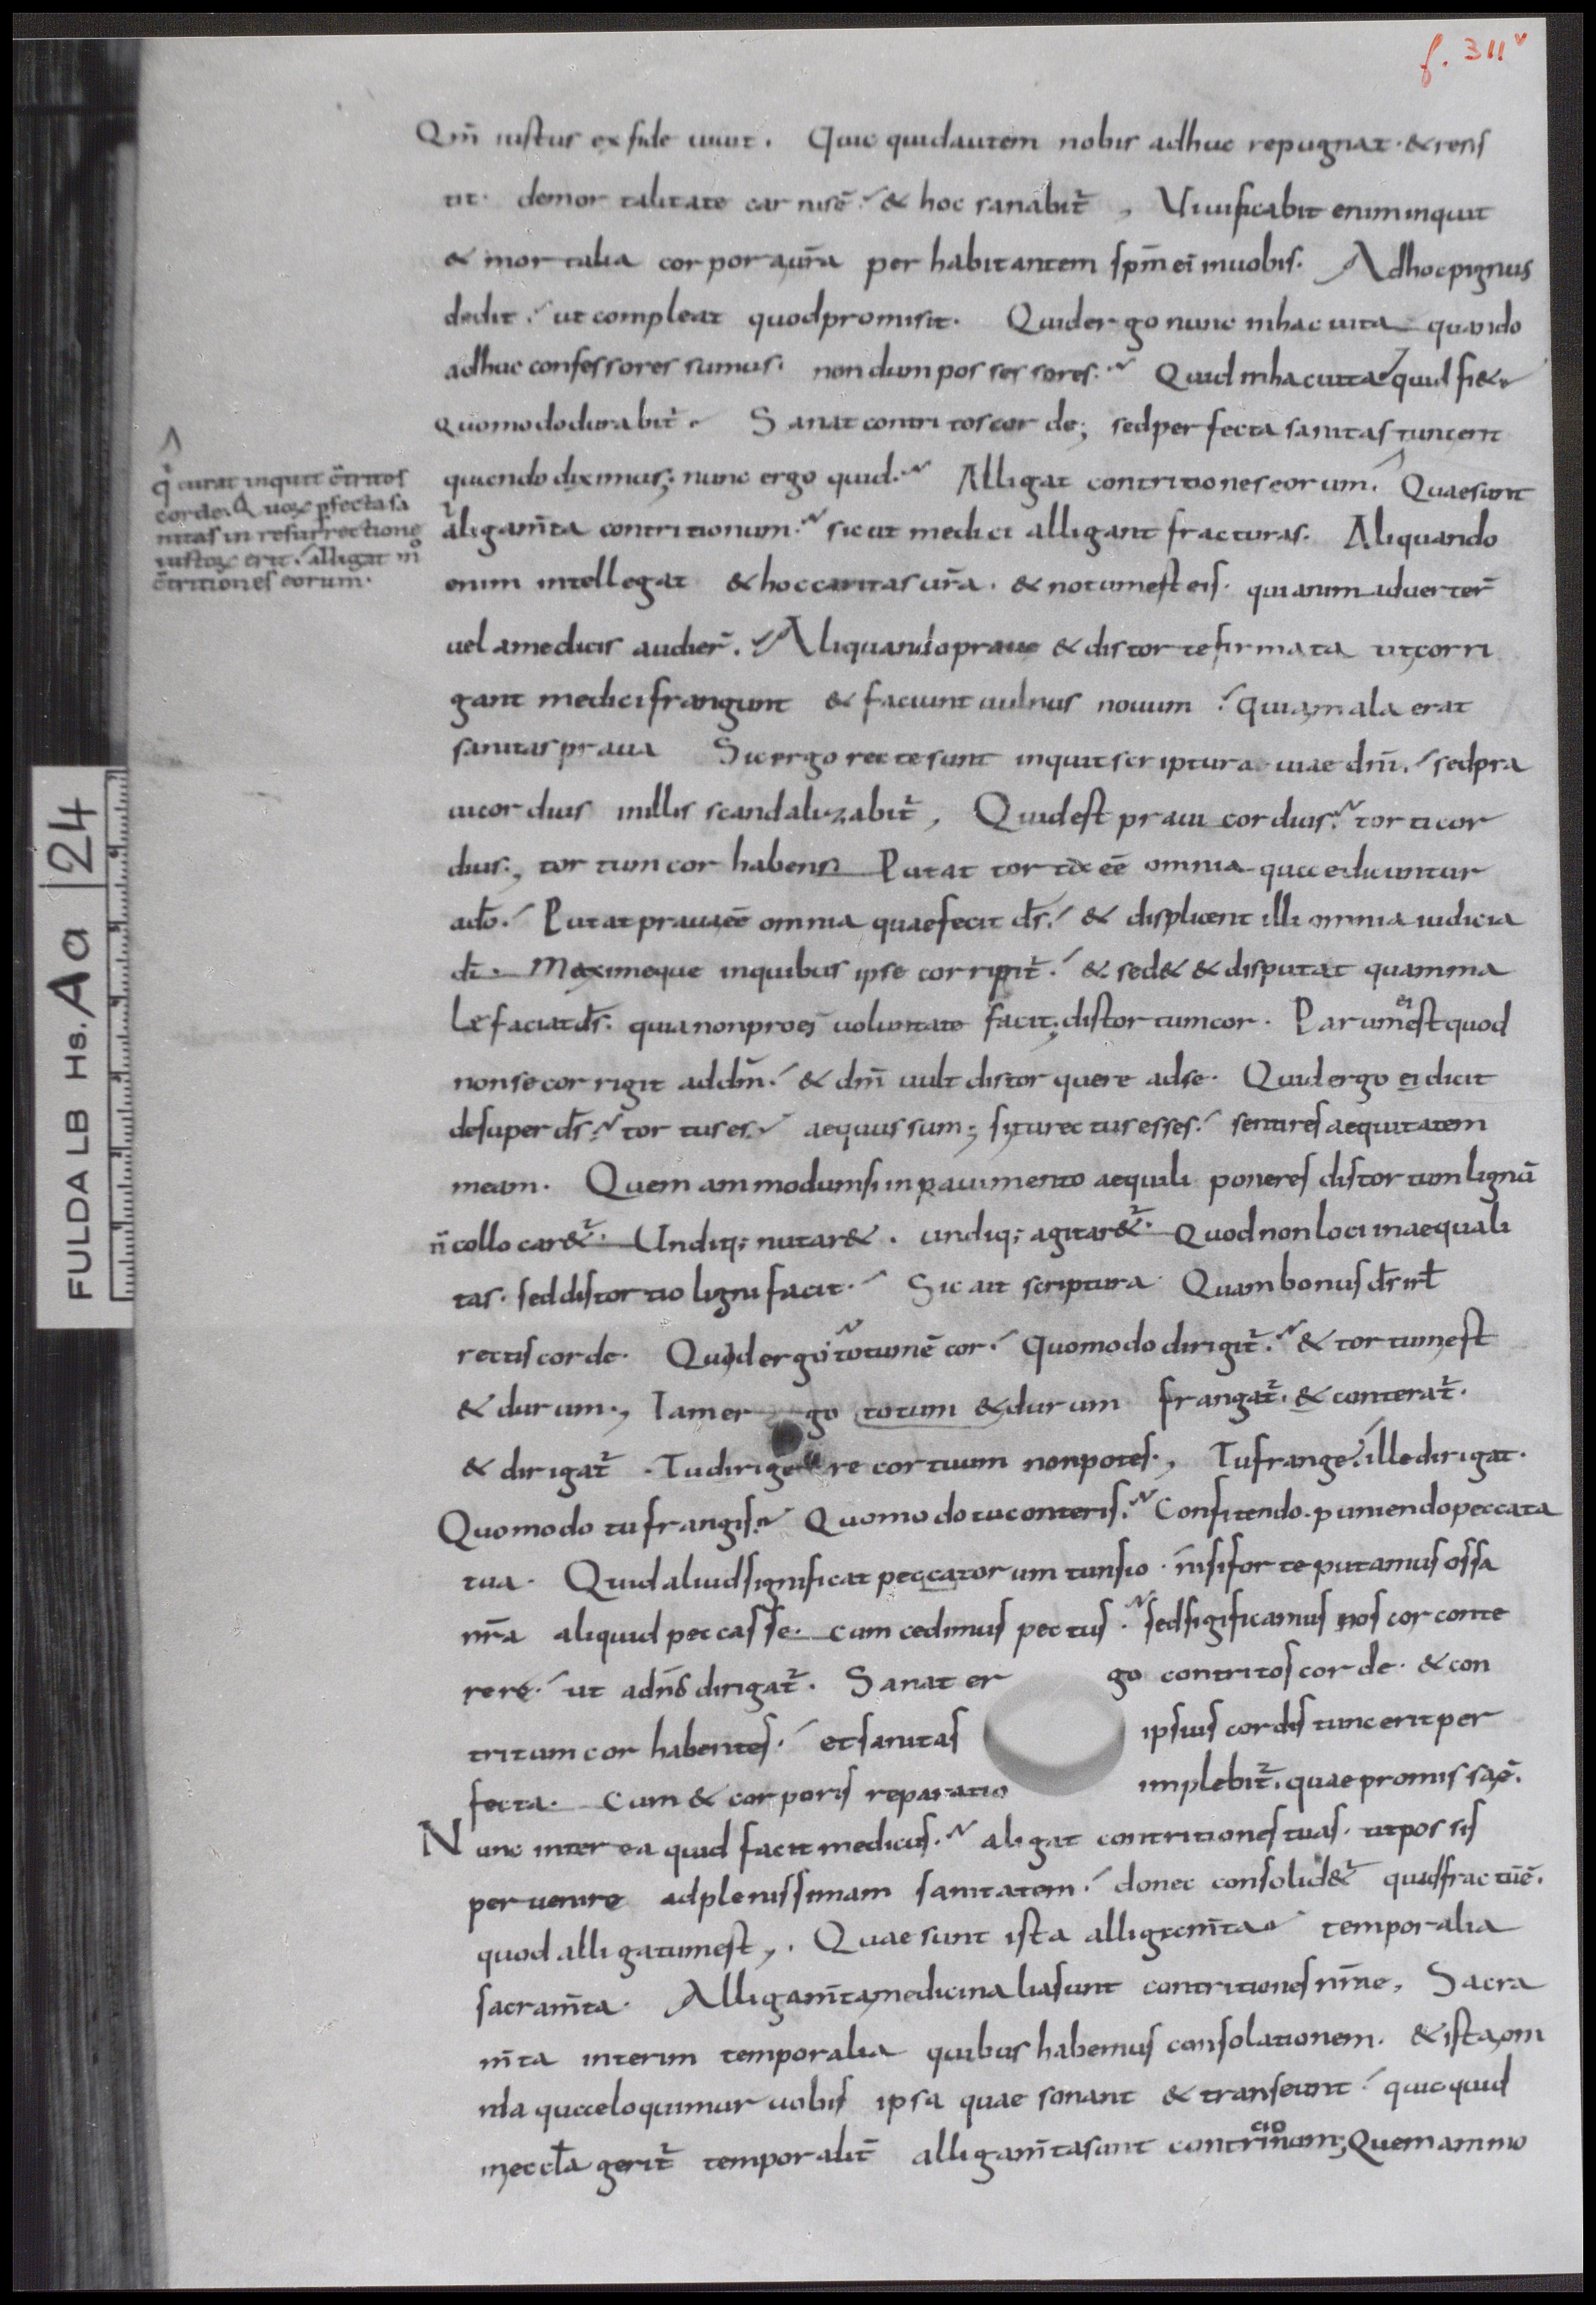 f. 311v
Qm̄ iustus ex fide uiuit. Quic quidautem nobis adhuc repugnat. & resis
tit. demor talitate car nisē. & hoc sanabit̄, Viuificabit eniminquit
& mortalia cor por aūra per habitantem sp̄m eī inuobis. Adhocpignus
dedit. ut compleat quodpromisit. Quider go nunc inhac uita quando
adhuc confessores sumus. non dum pos ses sores. Quid inhacuita quid fi&
quomododurabit̄. Sanat contri toscor de; sedper fecta sanitas tuncerit
quando diximus; nunc ergo quid. Alligat contritioneseorum. Quaesunt
q̄ curat inquit c̄tritos
corde. Quoꝝ pfecta sa
nitas in resurrectione
iustoꝝ erit. alligat
c̄tritiones eorum.
aligam̄ta contritionum. sicut medici alligant fracturas. Aliquando
enim intellegat & hoccaritas ur̄a. & notumest eis. qui anim aduerter̄
uel amedicis audier̄. Aliquandoprauae & distor tefirmata utcorri
gant medicifrangunt & faciunt uulnus nouum. quiamala erat
sanitas praua Sicergo rectesunt inquit scriptura uiae dn̄i. sedpra
uicor dius inillis scandalizabit̄, Quidest praui cordius. torticor
dius., tor tumcor habens Putat torta eē omnia quae dicuntur
ad̄o. Putat prauaeē omnia quaefecit d̄s. & displicent illi omnia iudicia
d̄i. Maximeque inquibus ipse corripit̄. & sed& & disputat quamma
le faciatd̄s. quianonproeī uoluntate facit; distortumcor. Parum ei est quod
nonsecor rigit add̄m. & dm̄ uult distor quere adse. Quid ergo ei dicit
desuper d̄s. tor tus es. aequus sum; situ rectus esses. sentires aequitatem
meam. Quem ammodumsi inpauimento aequali poneres distor tum lignū
n̄ collo car&̄. Undiq; nutar&. undiq; agitar&̄. Quod nonloci inaequali
tas. seddistor tio ligni facit. Sic ait scriptura Quam bonus d̄s isr̄l
rectis corde. Quidergo totumē cor. Quomodo dirigit̄. & tor tumest
& durum., Iamer go totum & durum frangat̄. & conterat̄.
& dirigat̄. Tudirige re cortuum nonpotes., Tufrange. illedirigat.
Quomodo tufrangis. Quomodo tuconteris. Confitendo. puniendopeccata
tua. Quidaliudsignificat peccator um tunsio. nisifor te putamus ossa
nr̄a aliquid peccasse. cum cedimus pectus. sedsigificamus nos cor conte
rere. ut adn̄o dirigat̄. Sanat er go contritos corde. & con
tritum cor habentes. etsanitas ipsius cordis tuncerit per
fecta. Cum & corporis reparatio implebit̄. quaepromissaē.
Nunc inter ea quid facit medicus. aligat contritiones tuas. utpos sis
peruenire adplenissimam sanitatem. donec consolid&̄ quidfractūē.
quod alli gatumest,. Quae sunt ista alligam̄ta temporalia
sacram̄ta. Alligam̄tamedicina liasunt contritiones nr̄ae, Sacra
m̄ta interim temporalia quibus habemus consolationem. & istaom
nia quaeloquimur uobis ipsa quae sonant & transeunt. quicquid
ineccl̄a gerit̄ temporalit̄ alligam̄tasunt contricionum; Quemammo
FULDA LB Hs. Aa 24